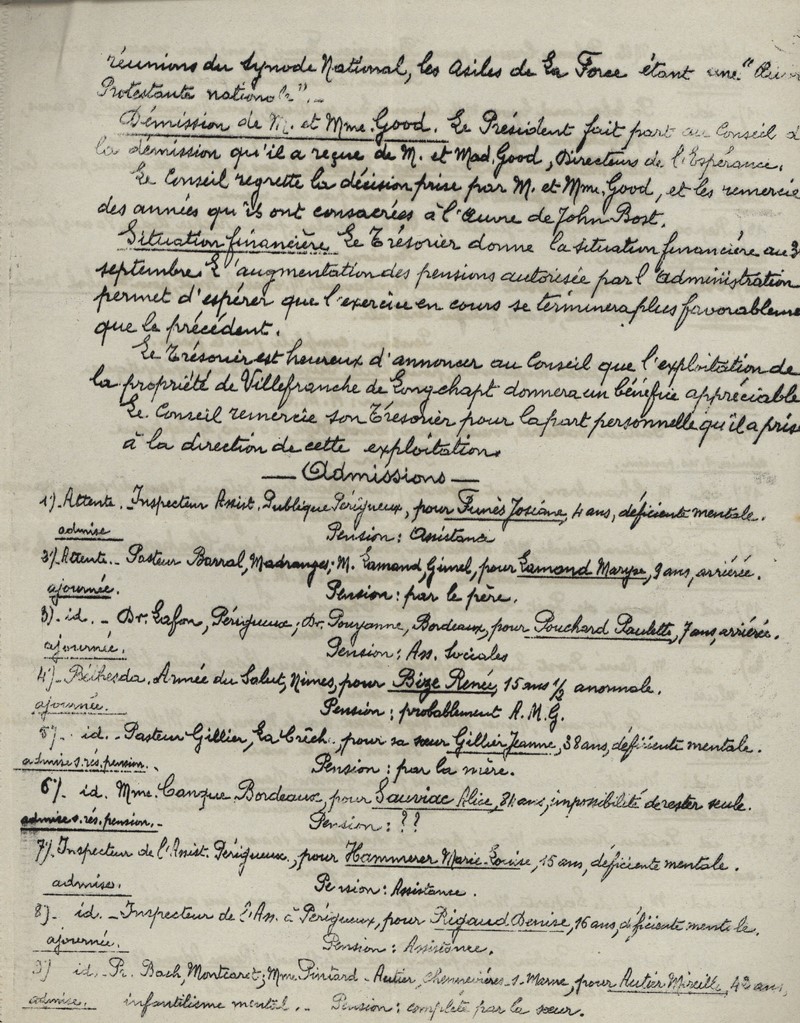 réunions du Synode National, les Asiles de La Force étant une "
Protestante nationale".-
Démission de M. et Mme. Good. Le Président fait part au Conseil d
la démission qu'il a reçue de M. et Mad. Good, Directeurs de l'Espérance.
Le Conseil regrette la décision prise par M. et Mme. Good, et les remercie
des années qu'ils ont consacrées à l'Œuvre de John Bost.
Situation financière. Le Trésorier donne la situation financière au 3
septembre. L'augmentation des pensions autorisée par l'administration
permet d'espérer que l'exercice en cours se terminera plus favorableme
que le précédent.
Le Trésorier est heureux d'annoncer au Conseil que l'exploitation de
la propriété de Villefranche de Longchapt donnera un bénéfice appréciable
Le Conseil remercie son Trésorier pour la part personnelle qu'il a prise
à la direction de cette exploitation.
— Admissions —
1°/- Attente. Inspecteur Assist. Publique Périgueux, pour Funès Josiane, 4 ans, déficiente mentale.
admise Pension: Assistance
2°/- Attente.- Pasteur Barral, Madranges; M. Lamand, Gimel, pour Lamond Maryse, 9 ans, arriérée.
ajournée. Pension: par le père.
3/. id. - Dr. Lafon, Périgueux; Dr. Pouyanne, Bordeaux, pour Pouchard Paulette, 7 ans, arriérée.
ajournée. Pension: Ass. Sociales
4°/- Béthesda. Armée du Salut, Nimes, pour Bize Renée, 15 ans 1/2 anormale.
ajournée. Pension: probablement A.M.G.
5°/- id. - Pasteur Gillier, La Crêch., pour sa sœur Gillier Jeanne, 38 ans, déficiente mentale.
admise s. rés. pension. - Pension: par la mère.
6°/- id. Mme. Canque Bordeaux, pour Sauviac Alice, ans, impossibilité de rester seule.
admise s. rés. pension.- Pension: ??
7°/- Inspecteur de l'Assist. Périgueux, pour Hammerer Marie-Louise, 15 ans, déficiente mentale.
admise. Pension: Assistance.
8/- id. - Inspecteur de l'Ass. à Périgueux, pour Rigaud Denise, 16 ans, déficiente mentale.
ajournée. Pension: Assistance.
9°/ id. - Pr. Bach, Montcaret; Mme. Pintard-Autier, Chennevières-s-Marne, pour Autier Mireille, ans,
admise. infantilisme mental. - Pension: complète par la sœur.